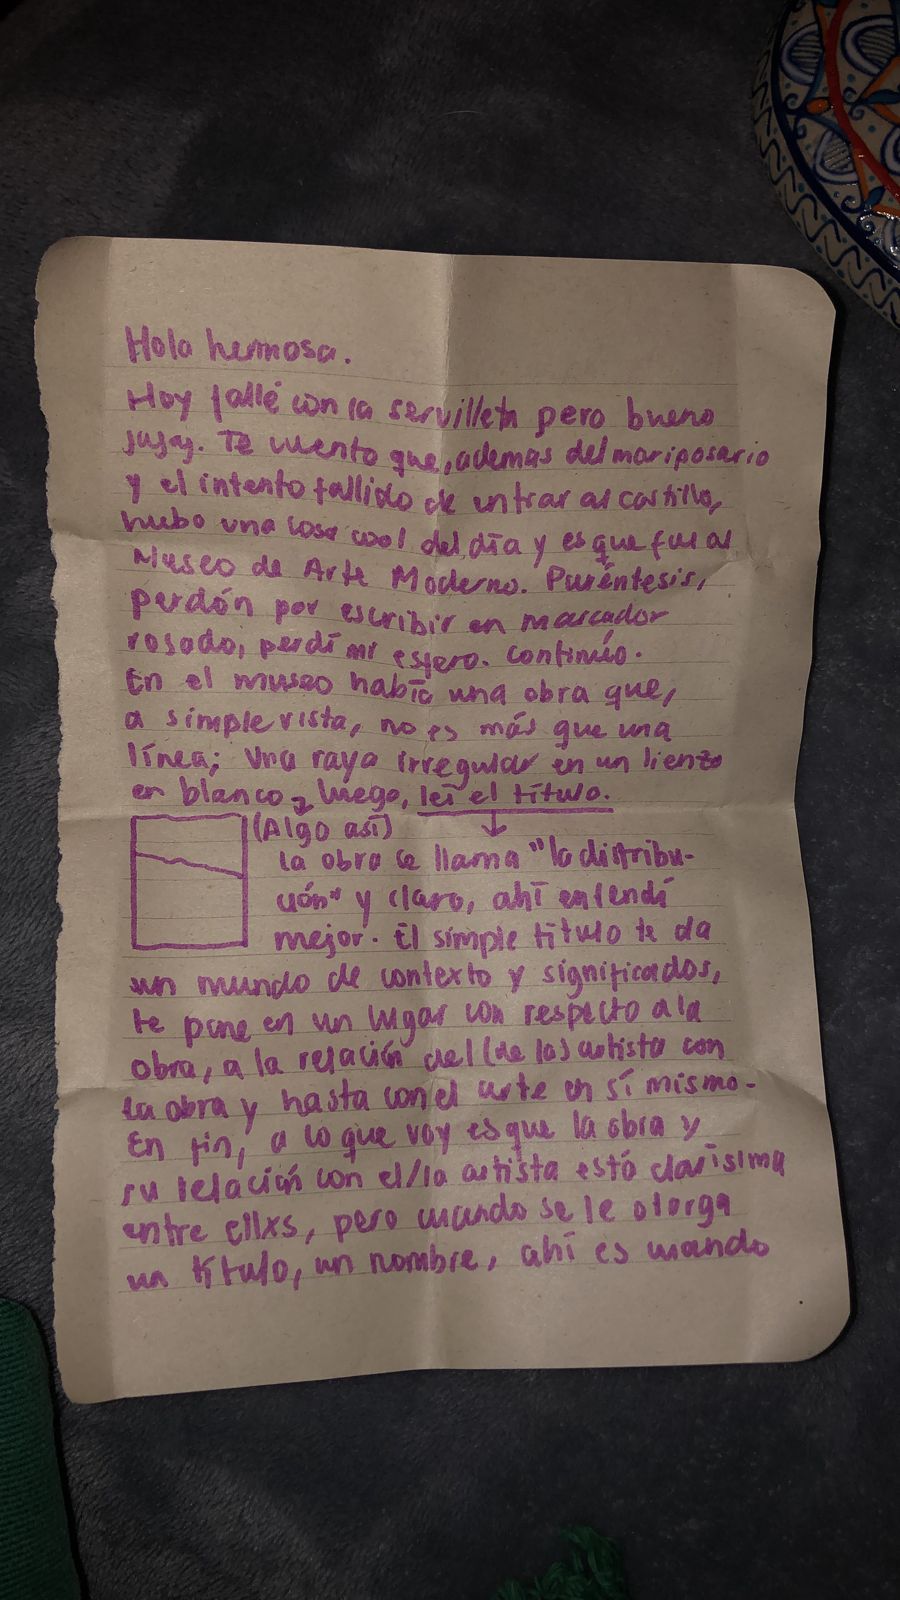 Hola hermosa.
Hoy fallé con la servilleta pero bueno
jajaj. Te cuento que, ademas del mariposario
y el intento fallido de entrar al castillo,
hubo una cosa cool del día y es que fui al
Museo de Arte Moderno. Paréntesis,
perdón por escribir en marcador
rosado, perdí mi esfero. Continúo.
En el museo había una obra que,
a simple vista, no es más que una
línea; Una raya irregular en un lienzo
en blanco, luego, leí el título.
(Algo así)
La obra se llama "la distribu-
ción" y claro, ahí entendí
mejor. El simple titulo te da
un mundo de contexto y significados,
te pone en un lugar con respecto a la
obra, a la relación del (de la) artista con
la obra y hasta con el arte en sí mismo.
En fin, a lo que voy es que la obra y
su relación con el/la artista está clarísima
entre ellxs, pero cuando se le otorga
un título, un nombre, ahí es cuando